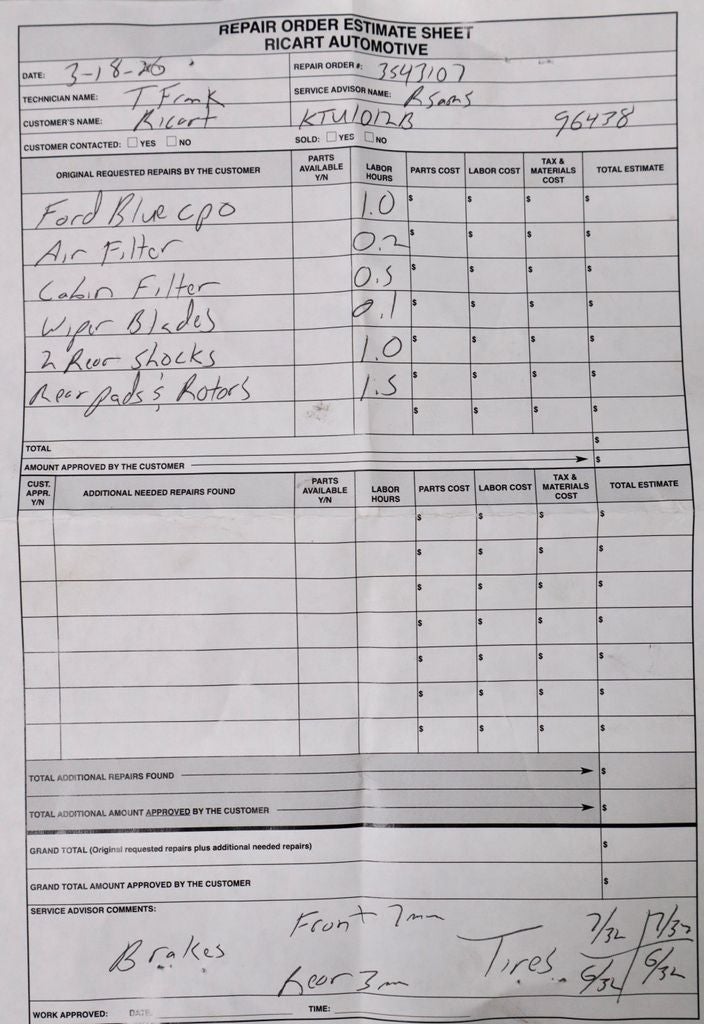 REPAIR ORDER ESTIMATE SHEET
RICART AUTOMOTIVE
DATE: 3-18-26 REPAIR ORDER #: 3543107
TECHNICIAN NAME: T Frank SERVICE ADVISOR NAME: RSams
CUSTOMER'S NAME: Ricart KTU1012B 96438
CUSTOMER CONTACTED: YES NO SOLD: YES NO
ORIGINAL REQUESTED REPAIRS BY THE CUSTOMER PARTS AVAILABLE Y/N LABOR HOURS PARTS COST LABOR COST TAX & MATERIALS COST TOTAL ESTIMATE
Ford Blue cpo 1.0 $ $ $ $
Air Filter 0.2 $ $ $ $
Cabin Filter 0.5 $ $ $ $
Wiper Blades 0.1 $ $ $ $
2 Rear shocks 1.0 $ $ $ $
Rear pads & Rotors 1.5 $ $ $ $
$ $ $ $
TOTAL $
AMOUNT APPROVED BY THE CUSTOMER $
CUST. APPR. Y/N ADDITIONAL NEEDED REPAIRS FOUND PARTS AVAILABLE Y/N LABOR HOURS PARTS COST LABOR COST TAX & MATERIALS COST TOTAL ESTIMATE
$ $ $ $
$ $ $ $
$ $ $ $
$ $ $ $
$ $ $ $
$ $ $ $
$ $ $ $
TOTAL ADDITIONAL REPAIRS FOUND $
TOTAL ADDITIONAL AMOUNT APPROVED BY THE CUSTOMER $
GRAND TOTAL (Original requested repairs plus additional needed repairs) $
GRAND TOTAL AMOUNT APPROVED BY THE CUSTOMER $
SERVICE ADVISOR COMMENTS:
Front 7mm 7/32 7/32
Brakes Tires
Rear 3m 6/32 6/32
WORK APPROVED: DATE: TIME: